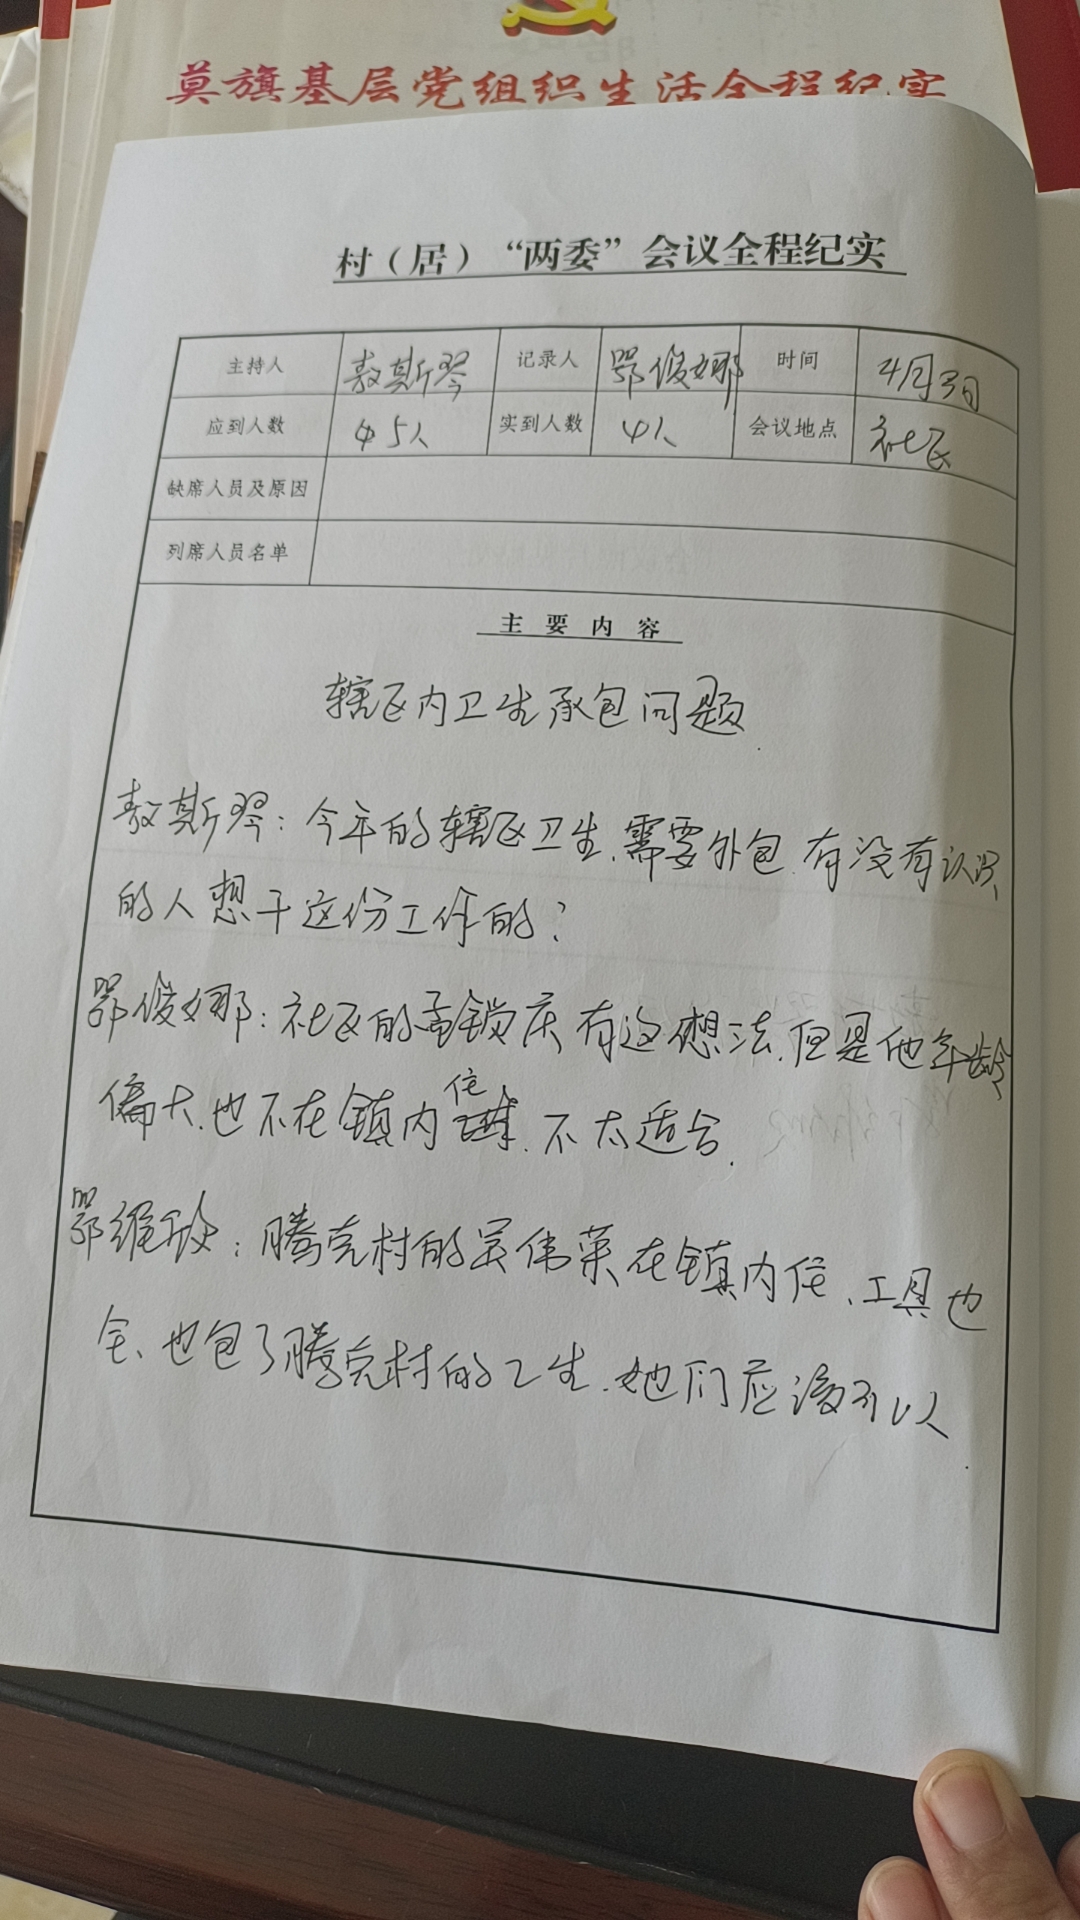 莫旗基层党组织生活全程纪实
村（居）“两委”会议全程纪实
主持人 敖斯琴 记录人 鄂俊娜 时间 4月3日
应到人数 5人 实到人数 4人 会议地点 社区
缺席人员及原因
列席人员名单
主要内容
辖区内卫生承包问题
敖斯琴：今年的辖区卫生、需要外包、有没有认识
的人想干这份工作的？
鄂俊娜：社区的孟锁庆有这想法、但是他年龄
偏大、也不在镇内住、不太适合、
鄂维：腾克村的吴伟荣在镇内住、工具也
全、也包了腾克村的卫生、她们应该可以